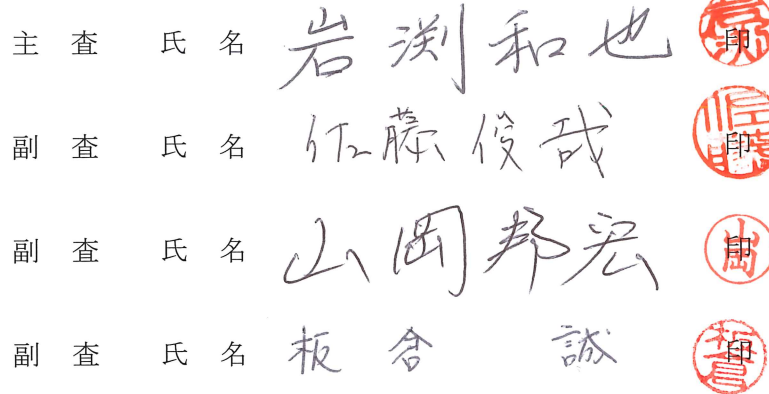 主査 氏名 岩渕和也 印
副査 氏名 佐藤俊哉 印
副査 氏名 山岡邦宏 印
副査 氏名 板倉 誠 印